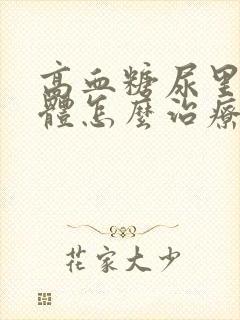 高血糖尿里
體怎麼治療
花家大少